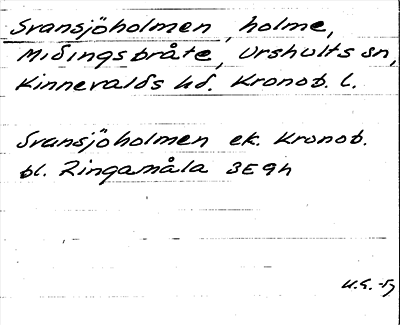 Svansjöholmen, holme,
Midingsbråte, Urshults sn,
Kinnevalds hd. Kronob. l.
Svansjöholmen ek. Kronob.
bl. Ringamåla 3E9h